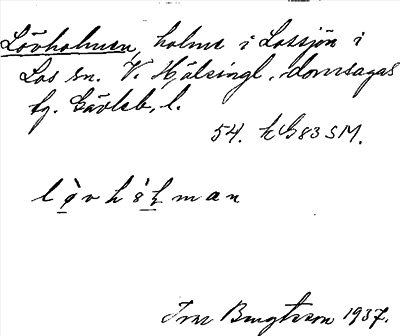 Lövholmen, holme i Lossjön i
Los sn. V. Hälsingl. domsagas
tg. Gävleb. l.
54. hG83SM.
lø̀vhɔ̀ḷman
Bengtsson 1937.